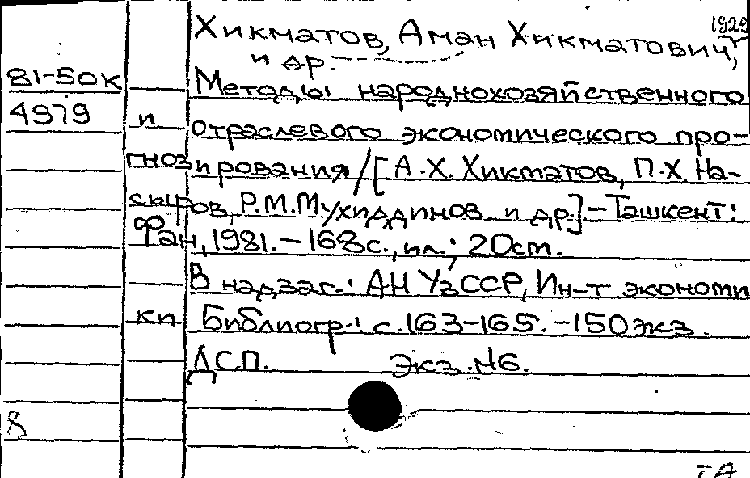 1929
Хикматов, Аман Хикматович,
и др.
81-50К Методы народнохозяйственного
4979 и отраслевого экономического про-
гнозирования/[А.Х. Хикматов, П.Х. На-
сыров, Р.М.Мухиддинов и др.]-Ташкент:
Фан, 1981.-168с., ил.; 20см.
В надзаг.: АН УзССР, Ин-т экономи
ки. Библиогр.: с.163-165.-150экз.
ДСП. Экз.№6.